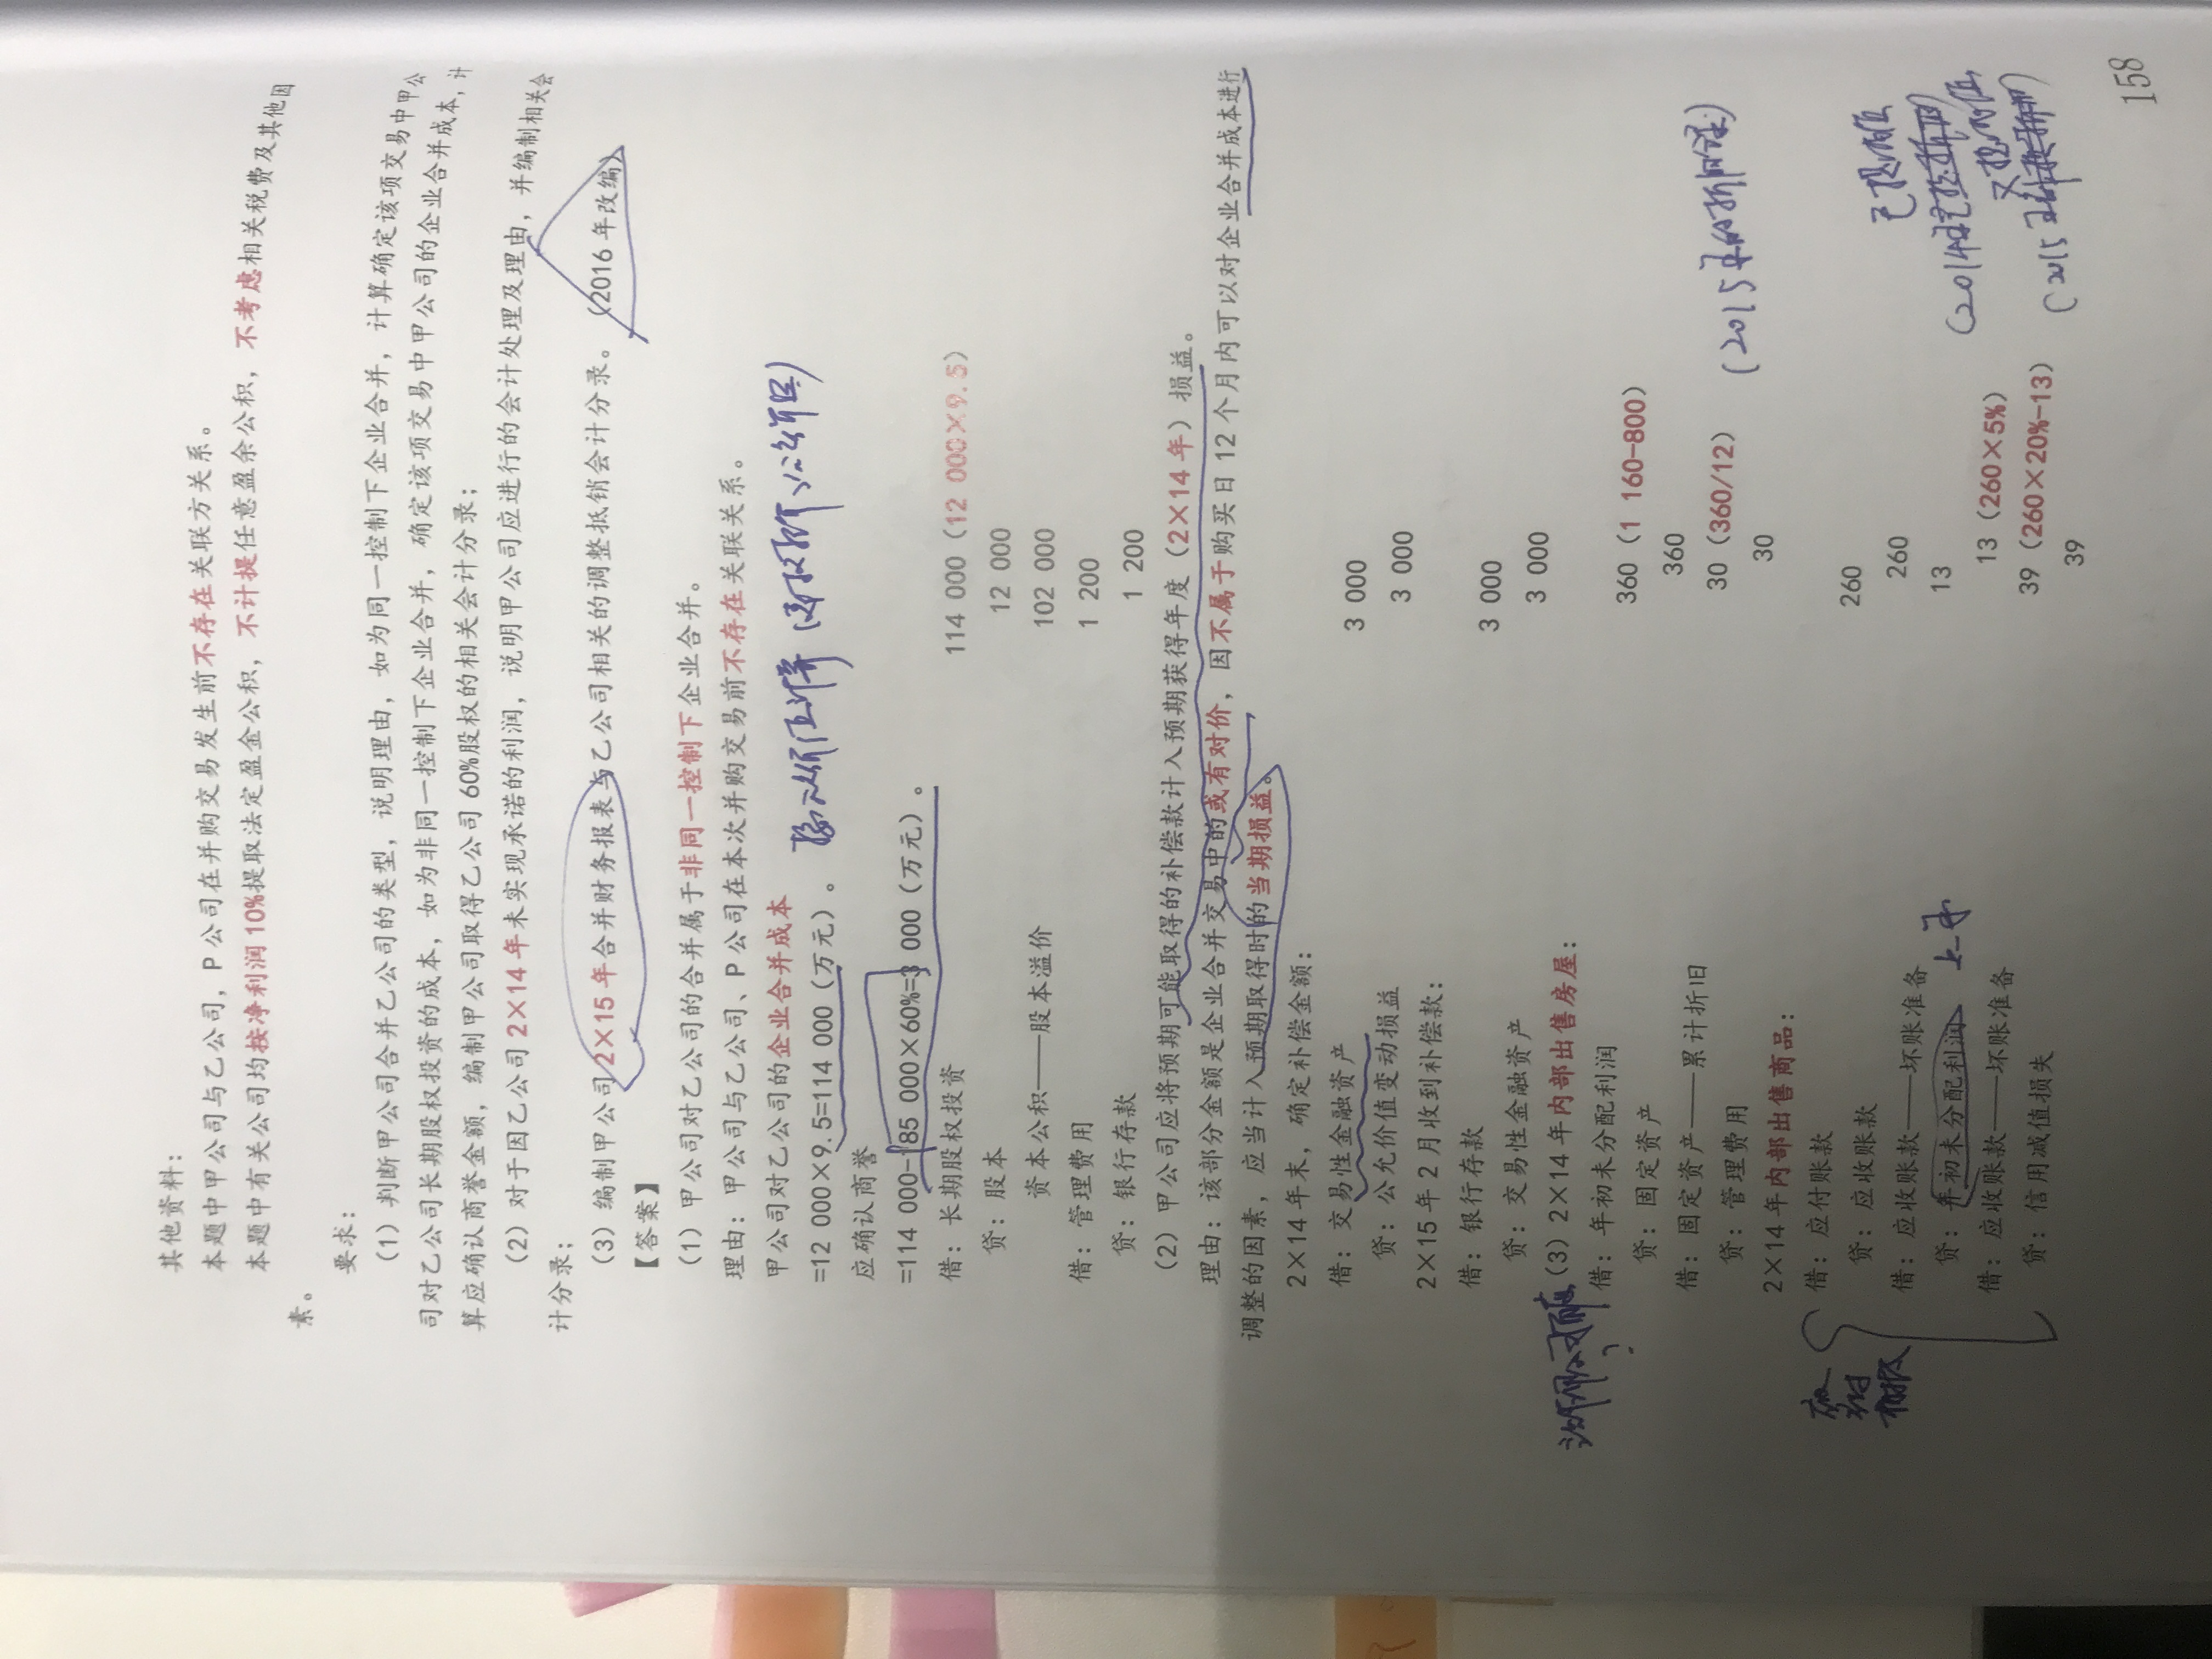 其他资料：
本题中甲公司与乙公司，P公司在并购交易发生前不存在关联方关系。
本题中有关公司均按净利润10%提取法定盈余公积，不计提任意盈余公积，不考虑相关税费及其他因
素。
要求：
（1）判断甲公司合并乙公司的类型，说明理由，如为同一控制下企业合并，计算确定该项交易中甲公
司对乙公司长期股权投资的成本，如为非同一控制下企业合并，确定该项交易中甲公司的企业合并成本，计
算应确认商誉金额，编制甲公司取得乙公司60%股权的相关会计分录；
（2）对于因乙公司2×14年未实现承诺的利润，说明甲公司应进行的会计处理及理由，并编制相关会
计分录；
（3）编制甲公司2×15年合并财务报表与乙公司相关的调整抵销会计分录。（2016年改编）
【答案】
（1）甲公司对乙公司的合并属于非同一控制下企业合并。
理由：甲公司与乙公司、P公司在本次并购交易前不存在关联关系。
甲公司对乙公司的企业合并成本
=12 000×9.5=114 000（万元）。
应确认商誉
=114 000-185 000×60%=3 000（万元）。
借：长期股权投资 114 000（12 000×9.5）
贷：股本 12 000
资本公积——股本溢价 102 000
借：管理费用 1 200
贷：银行存款 1 200
（2）甲公司应将预期可能取得的补偿款计入预期获得年度（2×14年）损益。
理由：该部分金额是企业合并交易中的或有对价，因不属于购买日12个月内可以对企业合并成本进行
调整的因素，应当计入预期取得时的当期损益。
2×14年末，确定补偿金额：
借：交易性金融资产 3 000
贷：公允价值变动损益 3 000
2×15年2月收到补偿款：
借：银行存款 3 000
贷：交易性金融资产 3 000
（3）2×14年内部出售房屋：
借：年初未分配利润 360（1 160-800）
贷：固定资产 360
借：固定资产——累计折旧 30（360/12） （2015年的折旧）
贷：管理费用 30
2×14年内部出售商品：
借：应付账款 260
贷：应收账款 260
借：应收账款——坏账准备 13
贷：年初未分配利润 13（260×5%）
借：应收账款——坏账准备 39（260×20%-13）
贷：信用减值损失 39
158